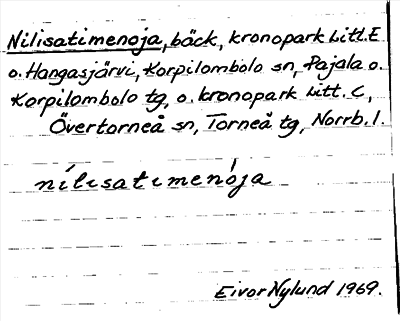 Nilisatimenoja, bäck, kronopark Litt. E
o. Hangasjärvi, Korpilombolo sn, Pajala o.
Korpilombolo tg, o. kronopark Litt. C,
Övertorneå sn, Torneå tg, Norrb. l.
nílısatımenòja
Eivor Nylund 1969.